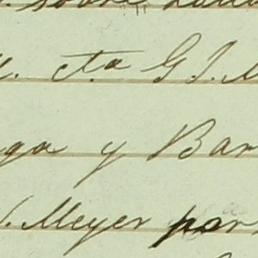 sobre
cta G J. M
ga y Bar
J. Meyer por